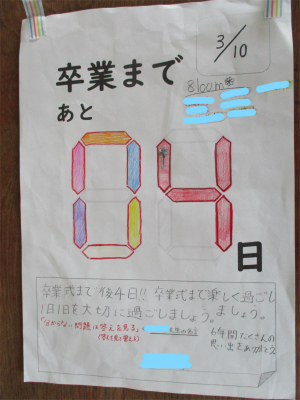 3/10
卒業まで
Bloom
あと
04
日
卒業式まで後4日!! 卒業式まで楽しく過ごし
ましょう。
1日1日を大切に過ごしましょう。
「分からない問題は答えを見る」
(答えを見て覚える)
6年間たくさんの
思い出をありがとう